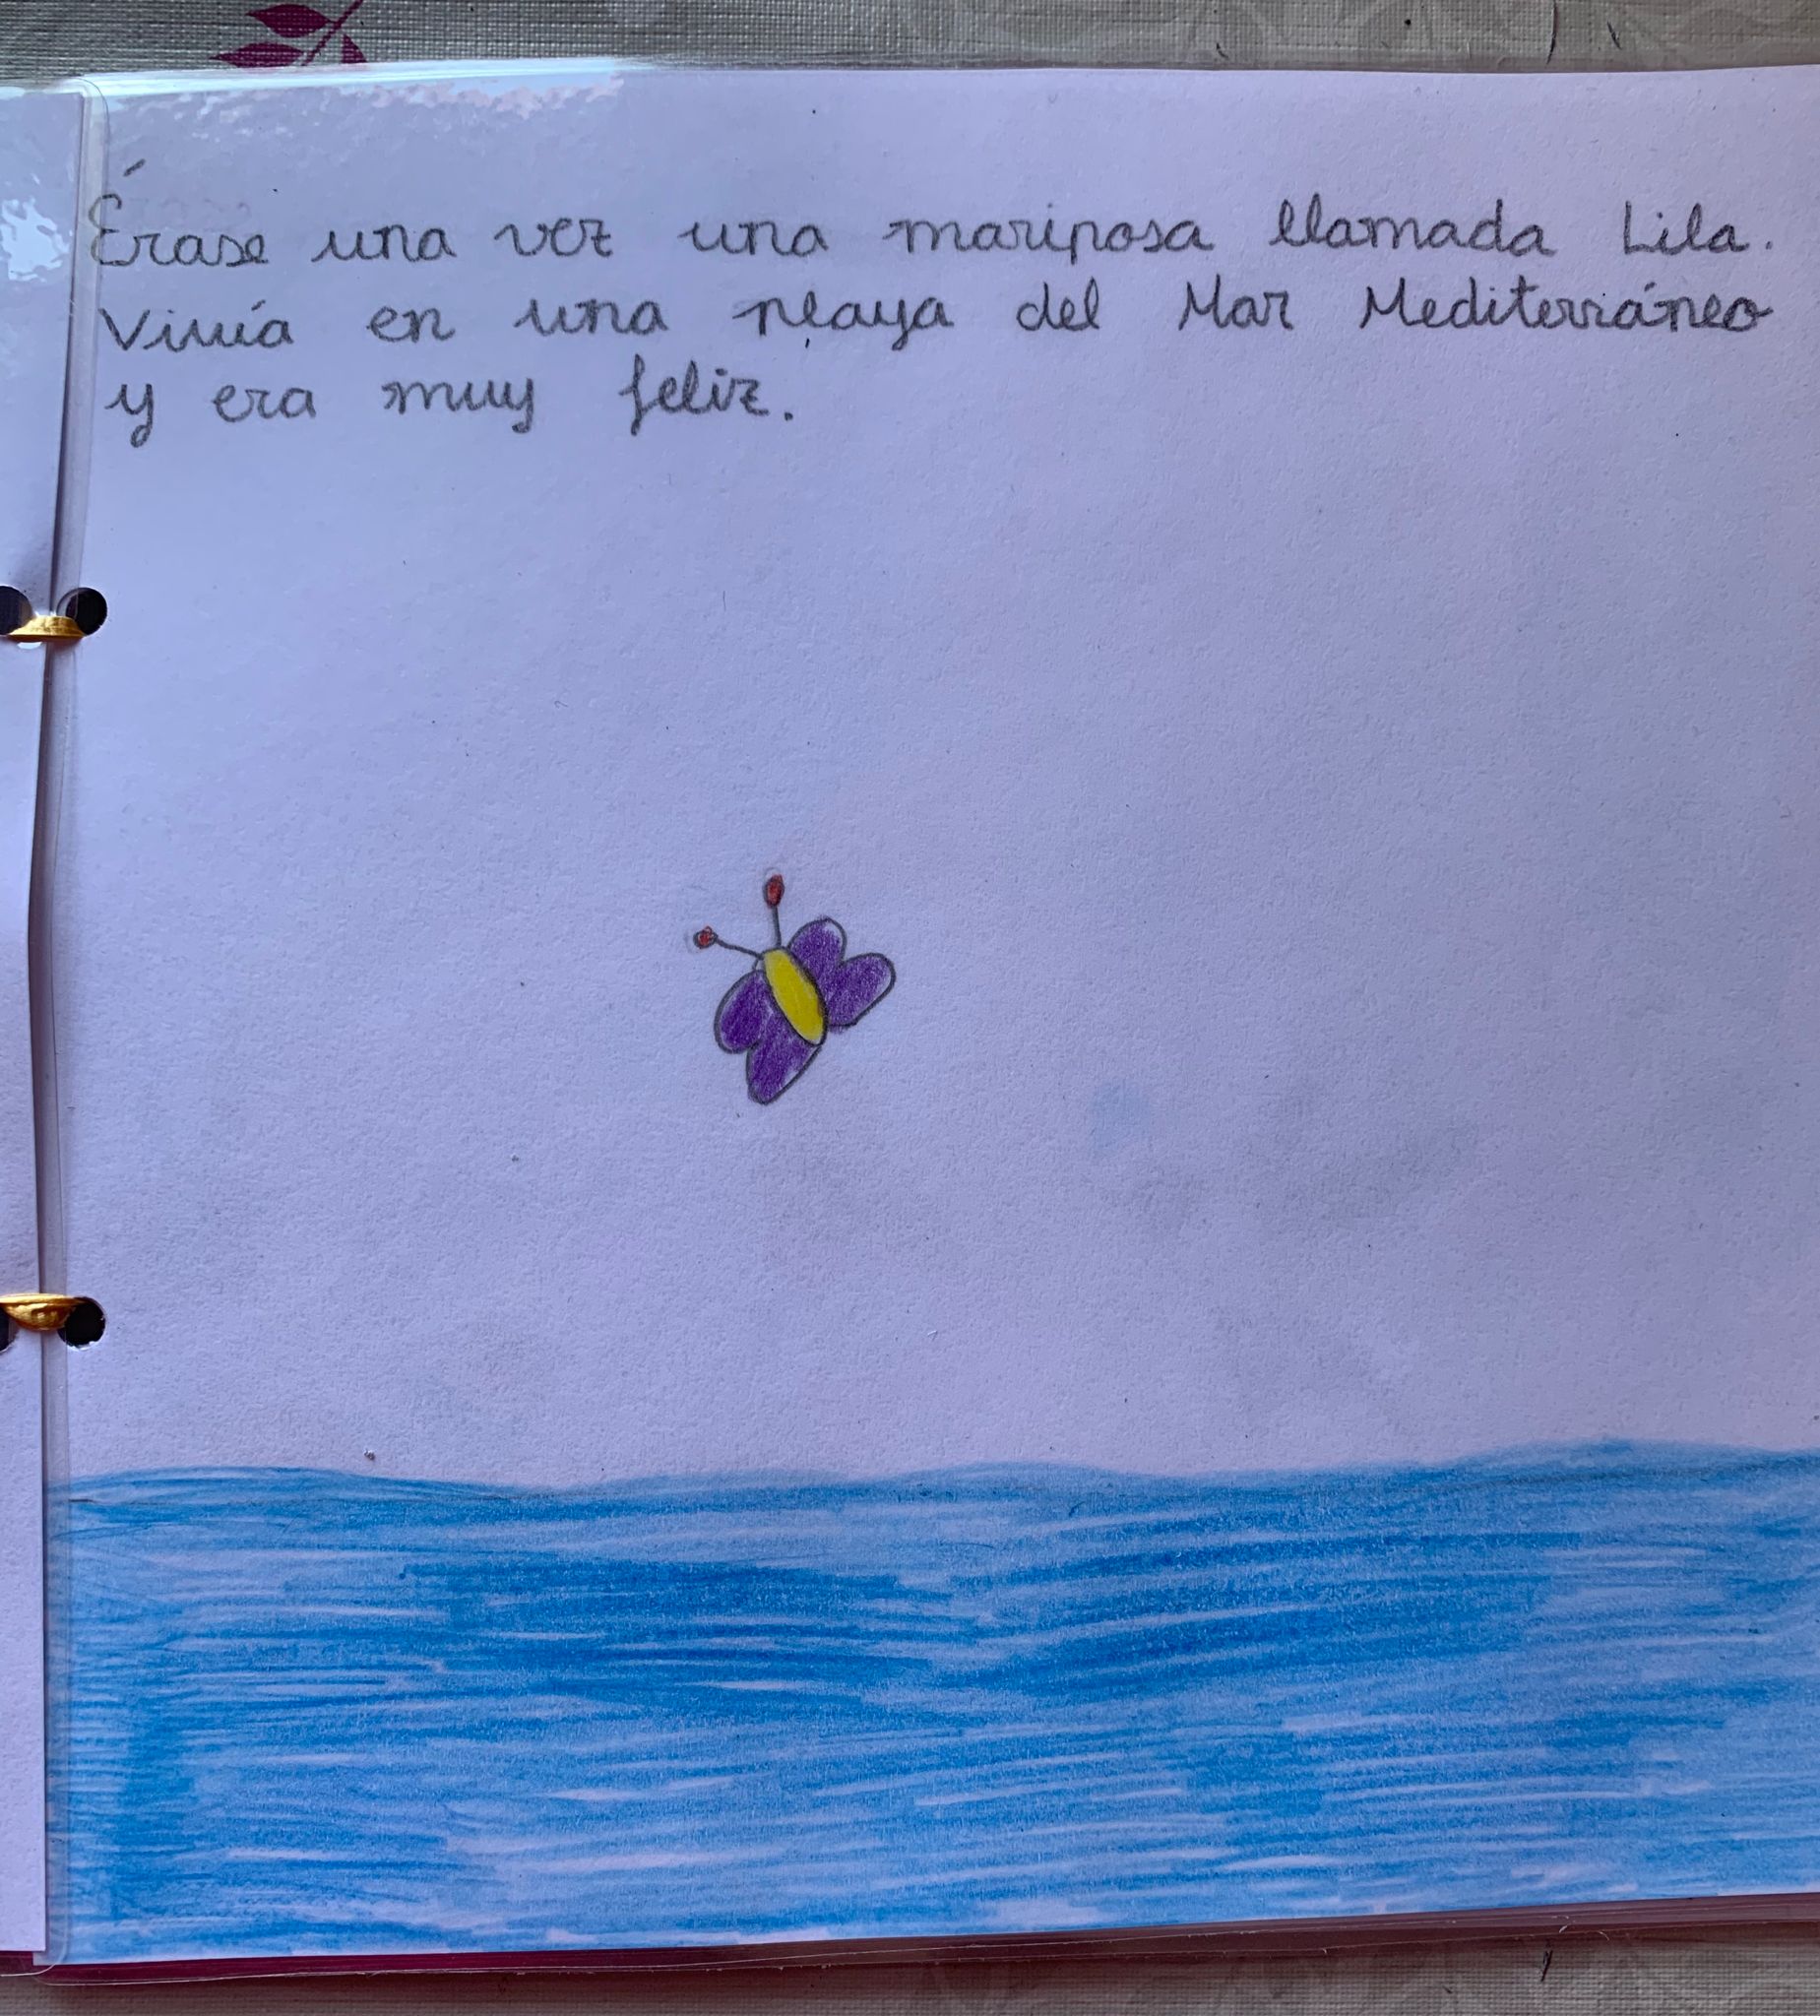 Érase una vez una mariposa llamada Lila.
Vivía en una playa del Mar Mediterráneo
y era muy feliz.